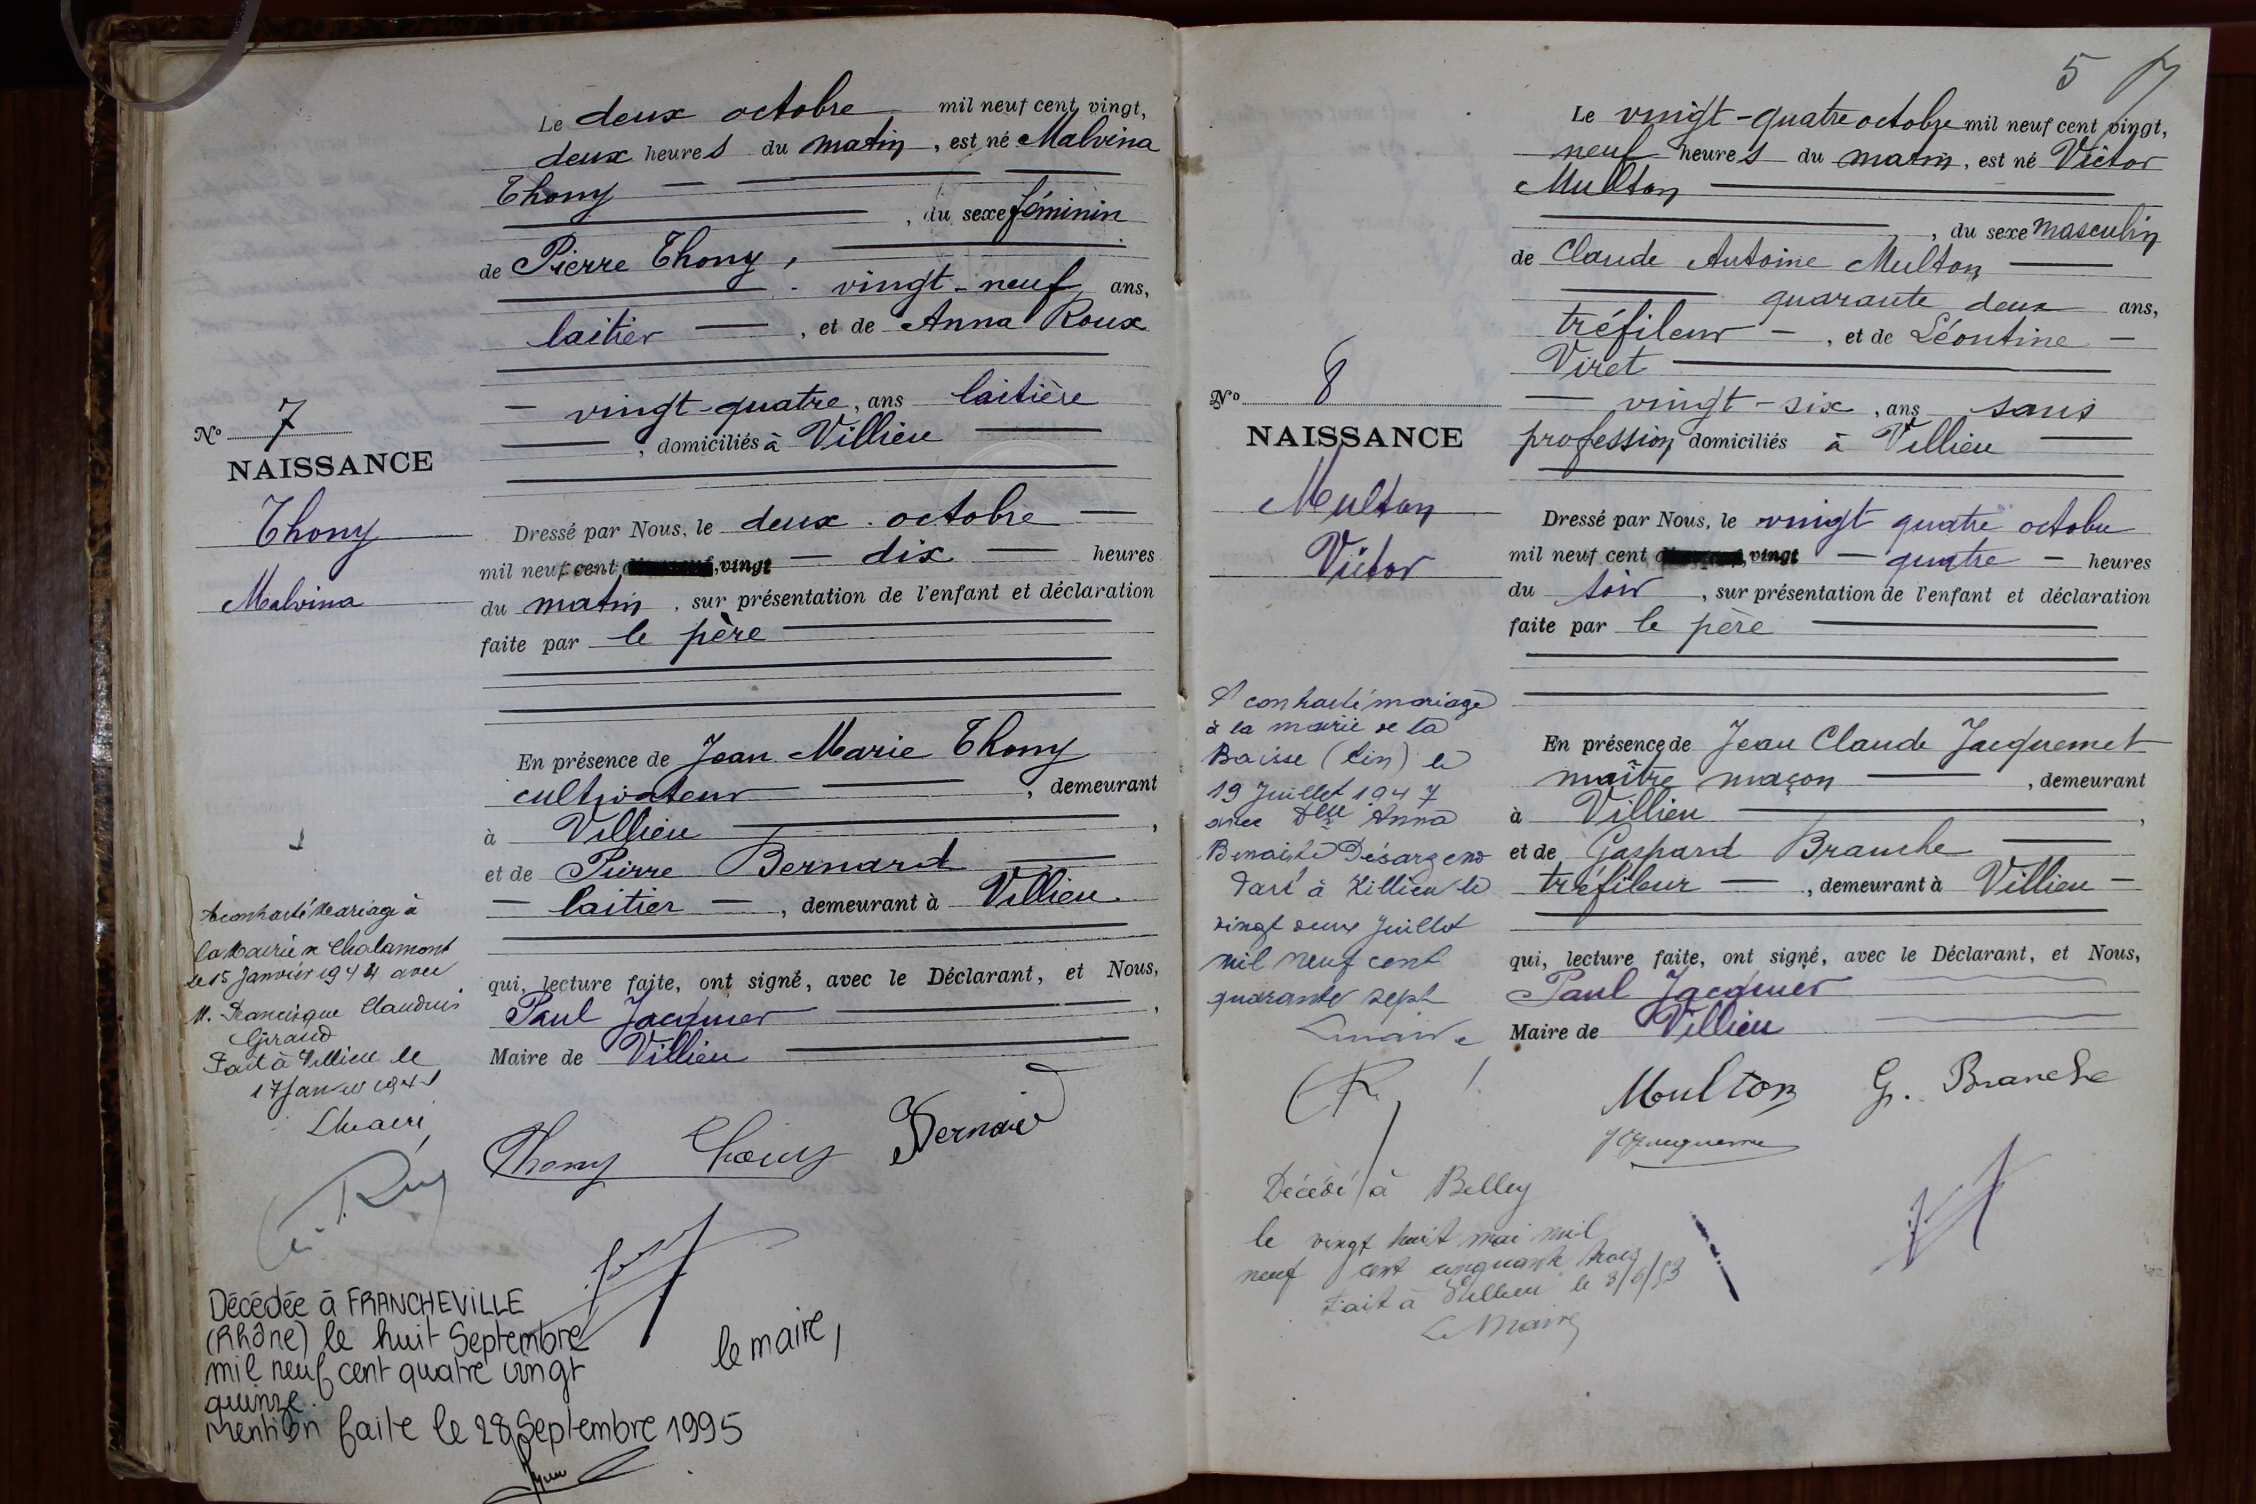 Le deux octobre mil neuf cent vingt,
deux heures du matin, est né Malvina
Thony
, du sexe féminin
de Pierre Thony,
vingt-neuf ans,
laitier, et de Anna Roux
vingt-quatre, ans laitière
, domiciliés à Villieu
No 7
NAISSANCE
Thony
Malvina
Dressé par Nous, le deux octobre
mil neuf cent, vingt dix heures
du matin, sur présentation de l'enfant et déclaration
faite par le père
En présence de Jean Marie Thony
cultivateur, demeurant
à Villieu,
et de Pierre Bernard
laitier, demeurant à Villieu
qui, lecture faite, ont signé, avec le Déclarant, et Nous,
Paul Jacquier,
Maire de Villieu
A contracté Mariage à
la Mairie de Chalamont
le 15 Janvier 1944 avec
M. Francisque Claudius
Giraud
Fait à Villieu le
17 Janvier
Le maire,
Thony Thony Bernard
Décédée à FRANCHEVILLE
(Rhône) le huit Septembre
mil neuf cent quatre vingt
quinze.
Mention faite le 28 Septembre 1995
le maire,
5
Le vingt-quatre octobre mil neuf cent vingt,
neuf heures du matin, est né Victor
Multon
, du sexe masculin
de Claude Antoine Multon
quarante deux ans,
tréfileur, et de Léontine
Viret
vingt-six, ans sans
profession domiciliés à Villieu
No 8
NAISSANCE
Multon
Victor
Dressé par Nous, le vingt quatre octobre
mil neuf cent, vingt quatre heures
du soir, sur présentation de l'enfant et déclaration
faite par le père
En présence de Jean Claude Jacquemet
maître maçon, demeurant
à Villieu,
et de Gaspard Branche
tréfileur, demeurant à Villieu
qui, lecture faite, ont signé, avec le Déclarant, et Nous,
Paul Jacquier
Maire de Villieu
A contracté mariage
à la mairie de la
Boisse (Ain) le
19 Juillet 1947
avec Dlle Anna
Benoite
Fait à Villieu le
vingt deux Juillet
mil neuf cent
quarante sept
Le maire
Multon G. Branche
Décédé à Belley
le vingt huit mai mil
neuf cent cinquante trois
Fait à Villieu le 8/6/53
Le Maire